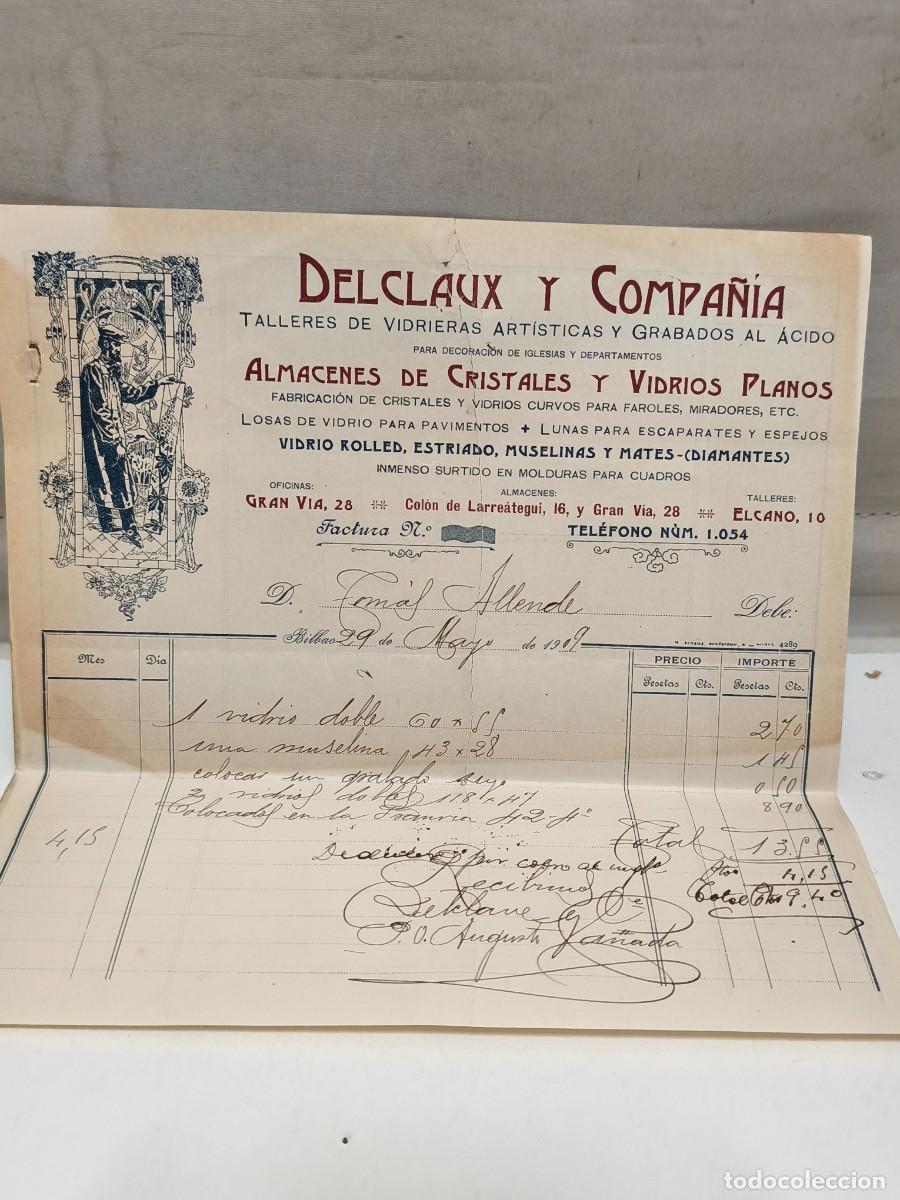 DELCLAUX Y COMPAÑÍA
TALLERES DE VIDRIERAS ARTÍSTICAS Y GRABADOS AL ÁCIDO
PARA DECORACIÓN DE IGLESIAS Y DEPARTAMENTOS
ALMACENES DE CRISTALES Y VIDRIOS PLANOS
FABRICACIÓN DE CRISTALES Y VIDRIOS CURVOS PARA FAROLES, MIRADORES, ETC.
LOSAS DE VIDRIO PARA PAVIMENTOS + LUNAS PARA ESCAPARATES Y ESPEJOS
VIDRIO ROLLED, ESTRIADO, MUSELINAS Y MATES-(DIAMANTES)
INMENSO SURTIDO EN MOLDURAS PARA CUADROS
OFICINAS: ALMACENES: TALLERES:
GRAN VIA, 28 Colón de Larreátegui, 16, y Gran Vía, 28 ELCANO, 10
Factura N.º TELÉFONO NÚM. 1.054
D. Tomás Allende Debe:
Bilbao 29 de Mayo de 1909
4289
Mes Día PRECIO IMPORTE
Pesetas Cts. Pesetas Cts.
1 vidrio doble 60 x 55 2 70
una muselina 43 x 28 1 45
colocar un grabado suyo 0 50
2 vidrios dobles 118 x 47 8 90
Colocados en la 42-4º
4,15 Total 13.55
por 4,15
Recibimos Total 9.40
Delclaux y Cª
P.O. Augusto
todocoleccion